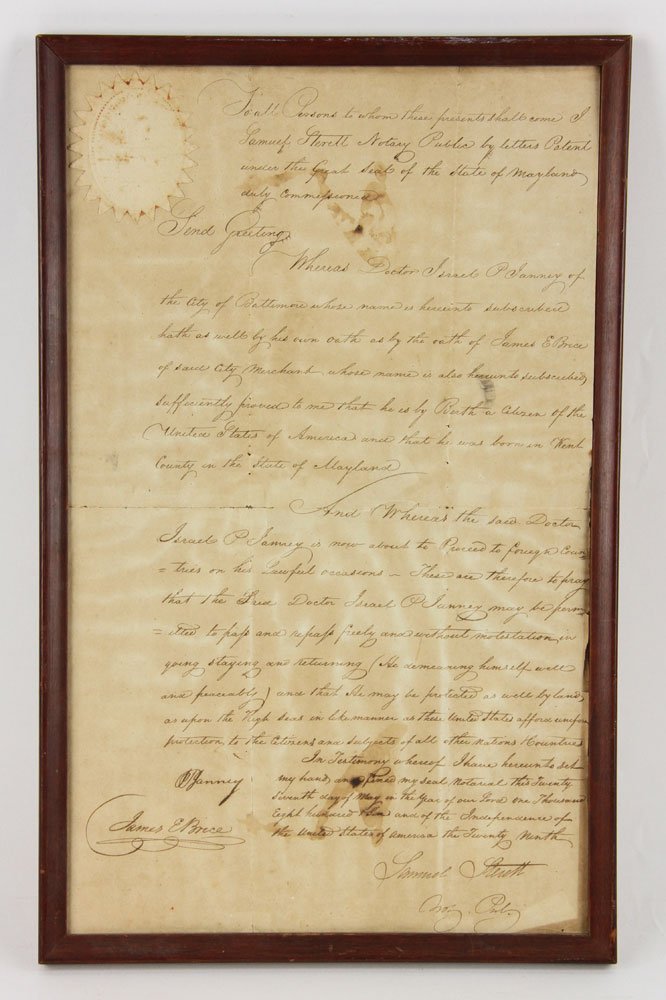 To all Persons to whom these presents shall come I
Samuel Sterett Notary Public by letters Patent
under the Great Seal of the State of Mayland
duly Commissioned
Send Greeting
Whereas Doctor Israel P Janney of
the City of Baltimore whose name is hereunto subscribed
hath as well by his own oath as by the oath of James E Brice
of said City Merchant whose name is also hereunto subscribed,
sufficiently proved to me that he is by Birth a Citizen of the
United States of America and that he was born in Kent
County in the State of Mayland
And Whereas the said Doctor
Israel P Janney is now about to Proceed to foreign Coun
=tries on his Lawful occasions ~ These are therefore to pray
that the Doctor Israel P Janney may be perm
=itted to pass and repass freely and without molestation in
going staying and returning (He demeaning himself well
and peaceably) and that He may be protected as well by land,
as upon the High Seas in like manner as these United States afford uniform
protection to the Citizens and subjects of all other Nations Countries
In Testimony whereof I have hereunto set
my hand and my Seal Notarial this Twenty
Seventh day of May in the Year of our Lord One Thousand
Eight hundred and of the Independence of
the United States of America the Twenty Ninth
Janney
James E Brice
Samuel Sterett
Noty. Pub.